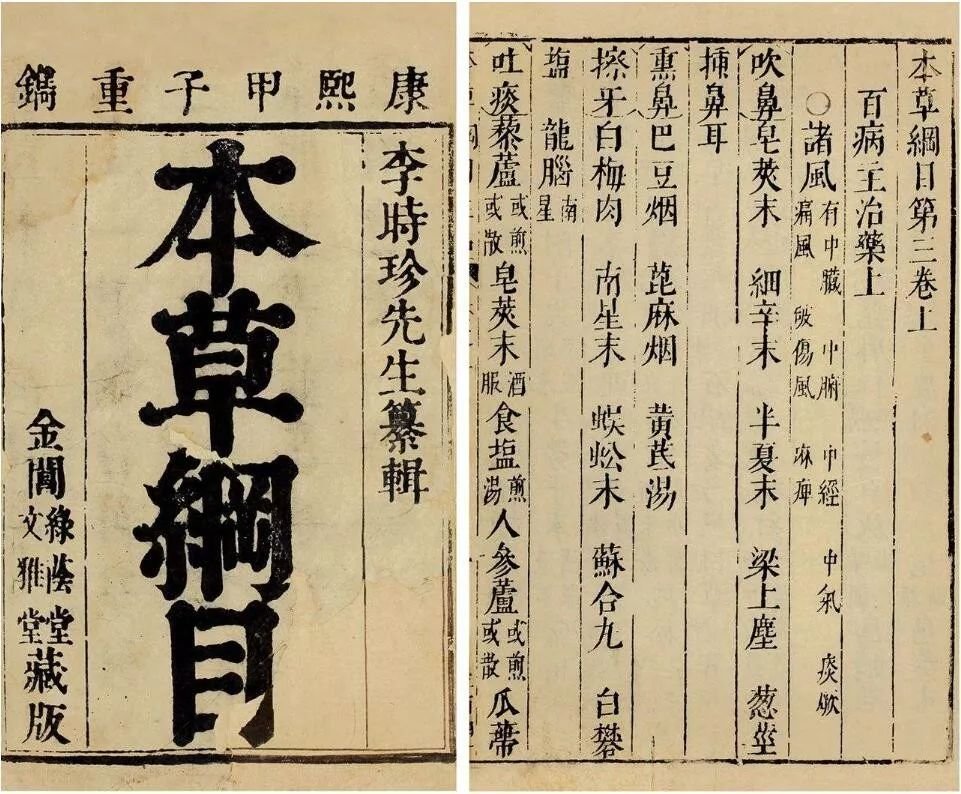 康熙甲子重鐫
李時珍先生纂輯
本草綱目
金閶綠蔭堂文雅堂藏版
本草綱目第三卷上
百病主治藥上
○諸風有中臟 中腑 中經 中氣 痰厥
痛風 破傷風 麻痺
吹鼻皂莢末 細辛末 半夏末 梁上塵 葱莖
插鼻耳
熏鼻巴豆烟 蓖麻烟 黄芪湯
擦牙白梅肉 南星末 蜈蚣末 蘇合丸 白礬
塩 龍腦南星
吐痰藜蘆或煎或散 皂莢末酒服 食塩煎湯 人參蘆或煎或散 瓜蒂